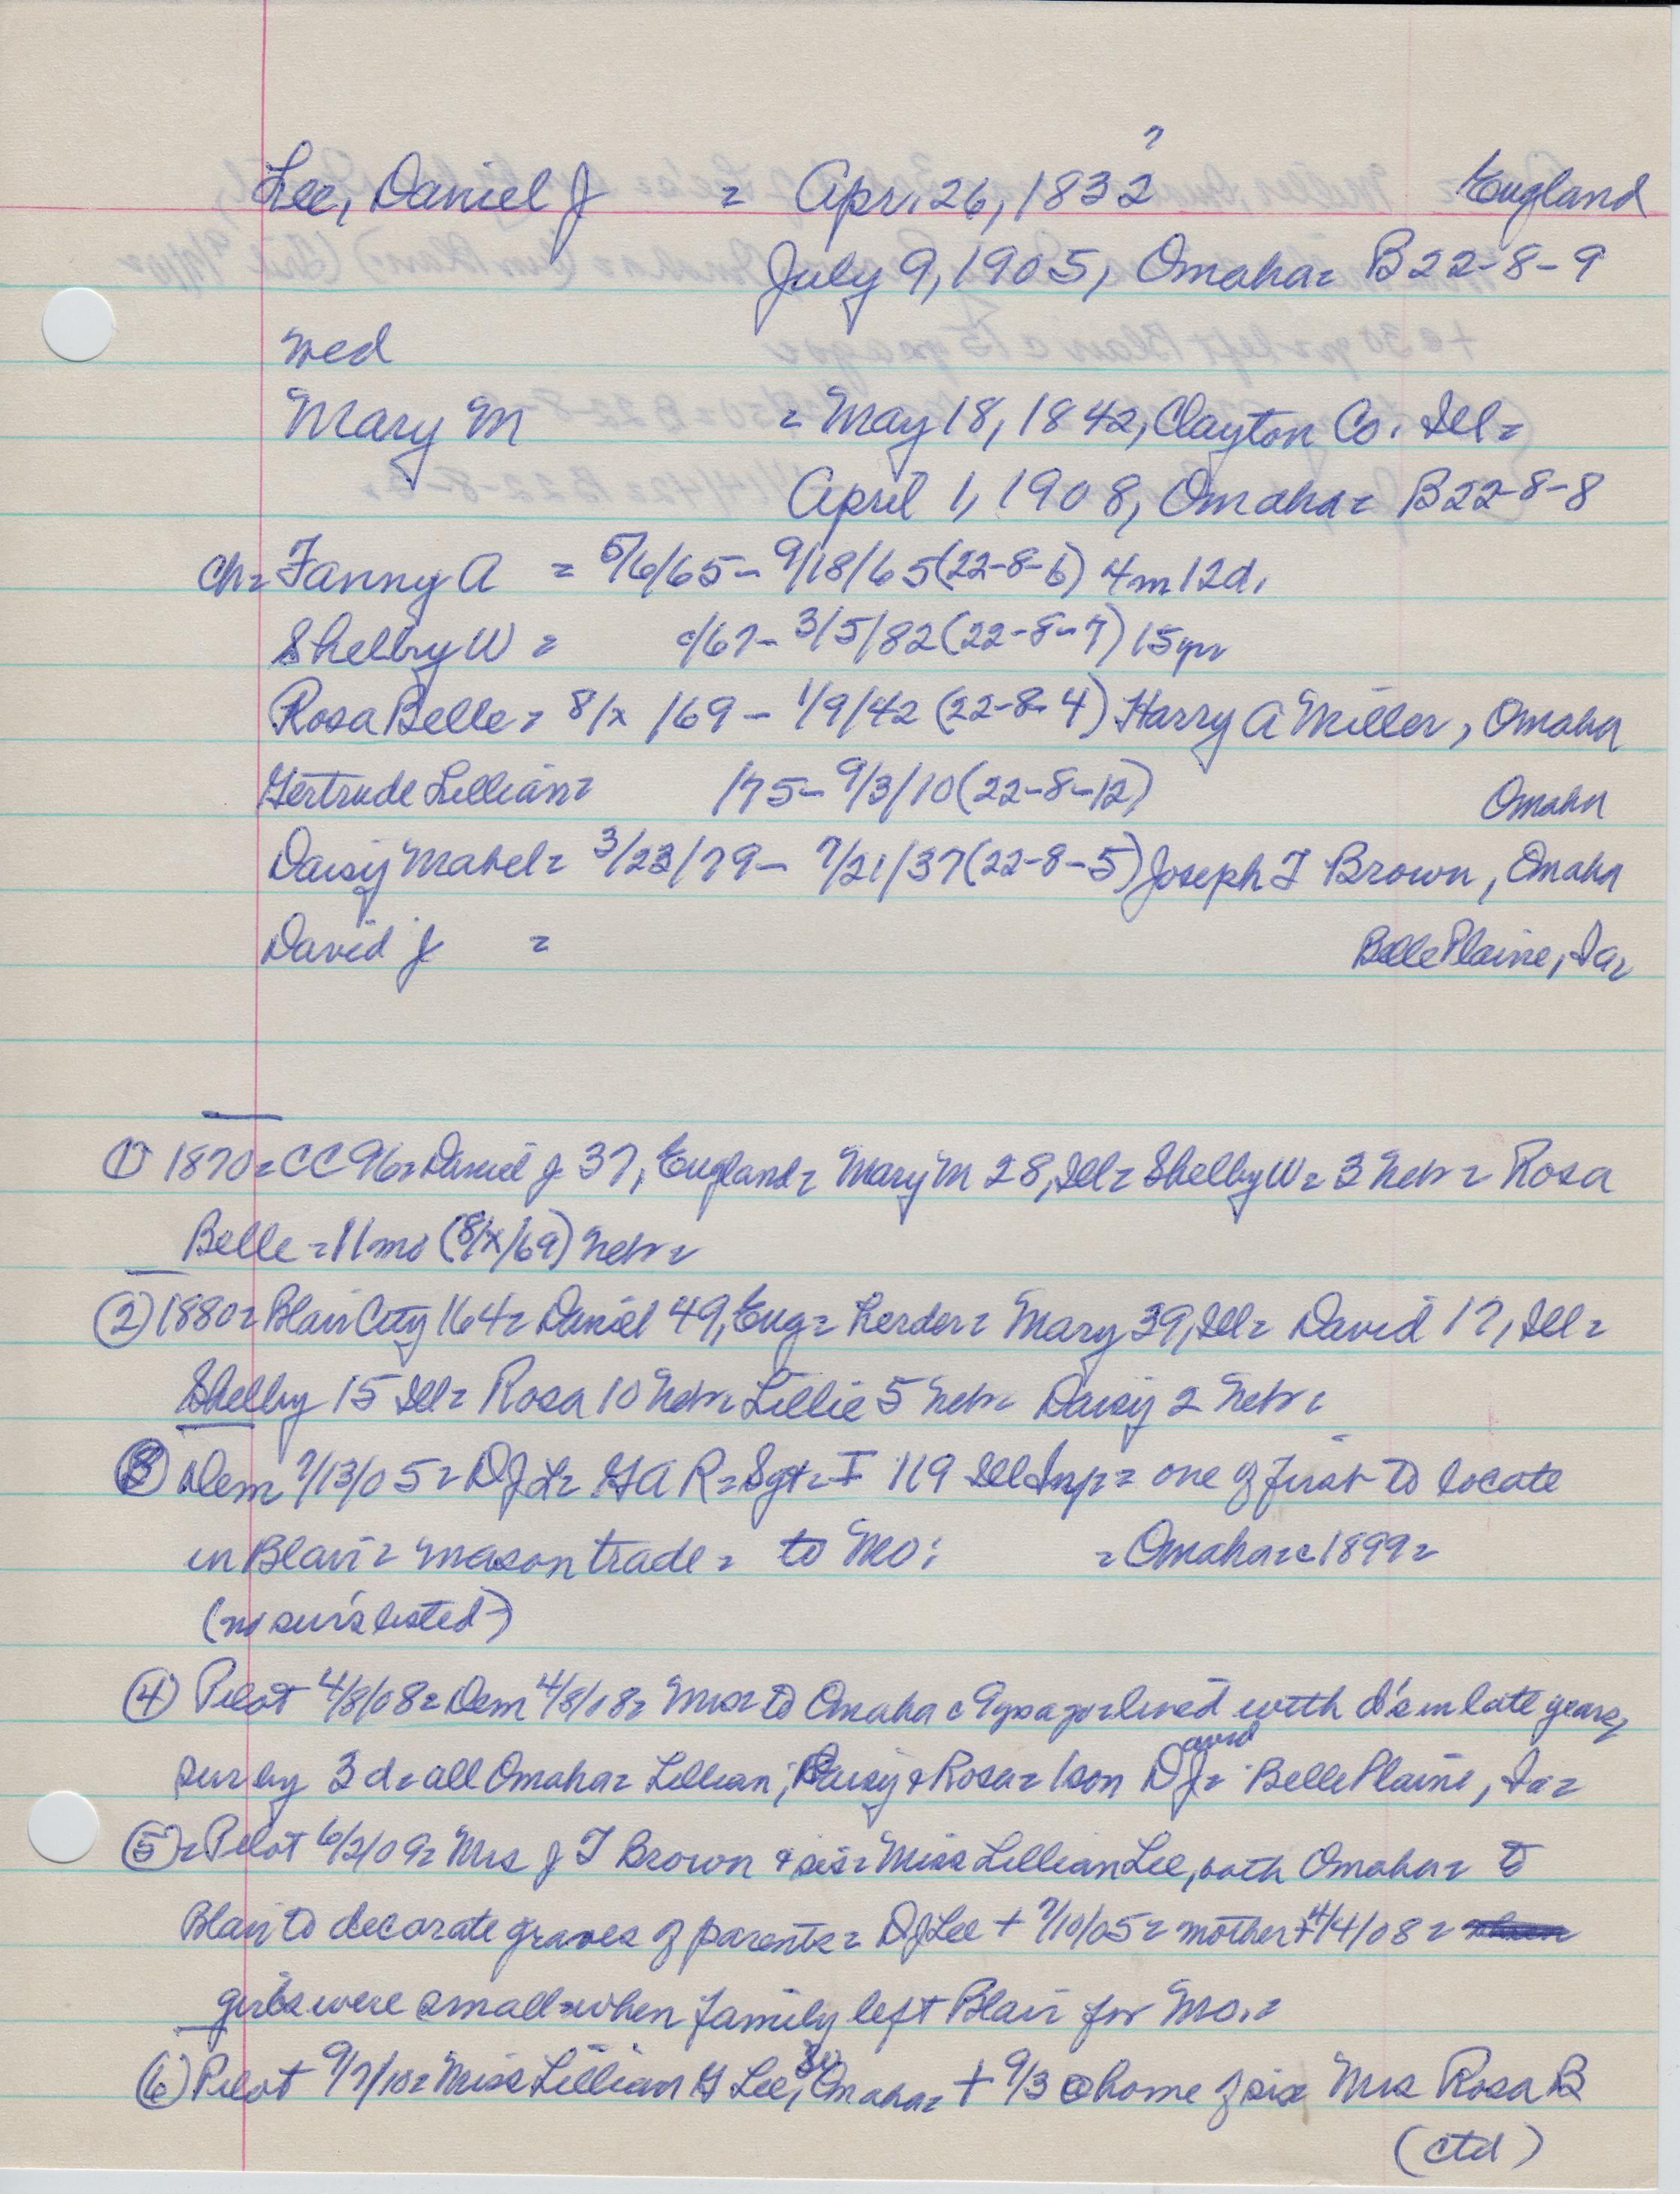 ?
Lee, Daniel J = Apr. 26, 1832 England
July 9, 1905, Omaha = B22-8-9
wed
Mary M = May 18, 1842, Clayton Co. Ill =
April 1, 1908, Omaha = B22-8-8
ch = Fanny A = 5/6/65 - 9/18/65 (22-8-6) 4m 12d.
Shelby W = c/67 - 3/5/82 (22-8-7) 15yr
Rosa Belle = 8/x/69 - 1/9/42 (22-8-4) Harry A Miller, Omaha
Gertrude Lillian = /75 - 9/3/10 (22-8-12) Omaha
Daisy Mabel = 3/23/79 - 7/21/37 (22-8-5) Joseph F Brown, Omaha
David J = Belle Plaine, Ia =
① 1870 = CC 96 = Daniel J 37, England = Mary M 28, Ill = Shelby W = 3 Nebr = Rosa
Belle = 11 mo (8/x/69) Nebr =
② 1880 = Blair City 164 = Daniel 49, Eng = Herder = Mary 39, Ill = David 17, Ill =
Shelby 15 Ill = Rosa 10 Nebr = Lillie 5 Nebr = Daisy 2 Nebr =
③ Dem 7/13/05 = DJL = GAR = Sgt = I 119 Ill Inf = one of first to locate
in Blair = mason trade = to Mo: = Omaha = c 1899 =
(no surv's listed)
④ Pilot 4/8/08 = Dem 4/8/08 = Mrs = to Omaha c 9 yrs ago = lived with d's in late years,
sur by 3 d = all Omaha = Lillian, Daisy & Rosa = 1 son David J = Belle Plaine, Ia =
⑤ = Pilot 6/2/09 = Mrs J F Brown & sis = Miss Lillian Lee, both Omaha = to
Blair to decorate graves of parents = DJ Lee + 7/10/05 = mother + 4/4/08 =
girls were small = when family left Blair for Mo. =
⑥ Pilot 9/7/10 = Miss Lillian G Lee, Omaha = + 9/3 @ home of sis Mrs Rosa B
(ctd)